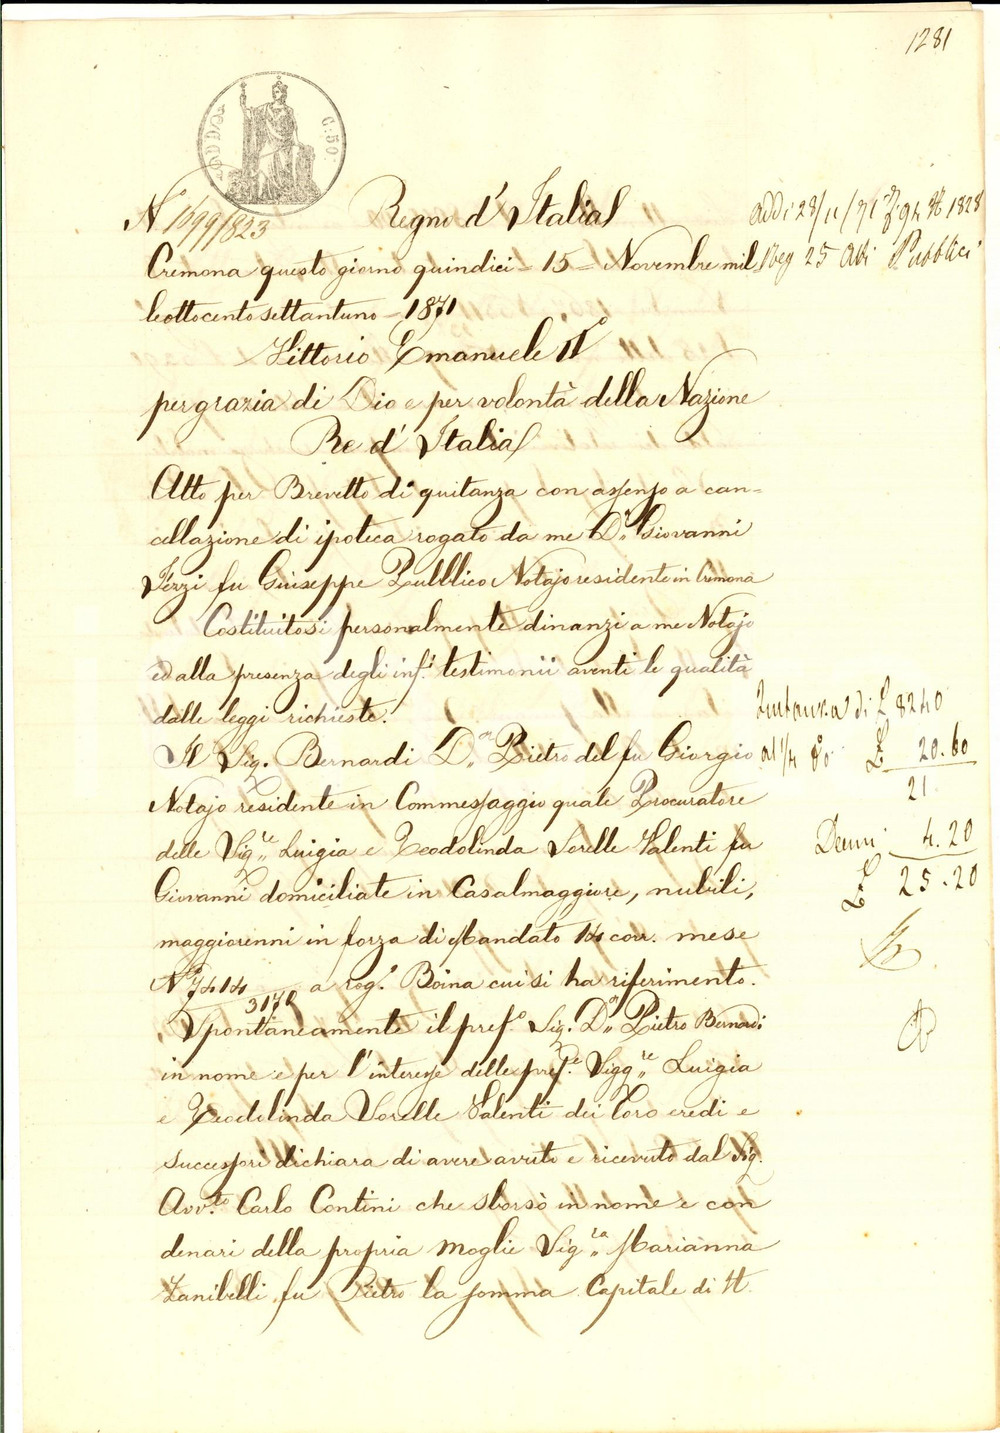 1281
C: 50
N.° 1699/823
Regno d' Italia
addi 28/11/71 N 1828
Cremona questo giorno quindici = 15 = Novembre mil
Reg 25 Atti Pubblici
leottocentosettantuno = 1871
Vittorio Emanuele II°
per grazia di Dio e per volontà della Nazione
Re d' Italia
Atto per Brevetto di quitanza con assenso a can=
cellazione di ipoteca rogato da me D.r Giovanni
Fezzi fu Giuseppe Pubblico Notajo residente in Cremona
Costituitosi personalmente dinanzi a me Notajo
ed alla presenza degli inf.i testimonii aventi le qualità
dalle leggi richieste.
Quitanza di £ 8240
Il Sig. Bernardi D.or Pietro del fu Giorgio
al 1/4 % £ 20.60
Notajo residente in Commessaggio quale Procuratore
21
delle Sig.re Luigia e Teodolinda Sorelle Valenti fu
Decimi 4.20
Giovanni domiciliate in Casalmaggiore, nubili,
£ 25.20
maggiorenni in forza di Mandato 14 corr. mese
N.° 7414/3170 a rog.° Boina cui si ha riferimento.
Spontaneamente il pref.° Sig. D.or Pietro Bernardi
in nome e per l'interesse delle pref.e Sigg.re Luigia
e Teodolinda Sorelle Valenti dei loro eredi e
successori dichiara di avere avuto e ricevuto dal Sig.
Avv.to Carlo Contini che sborsò in nome e con
denari della propria moglie Sig.ra Marianna
Zanibelli fu Pietro la somma Capitale di It.